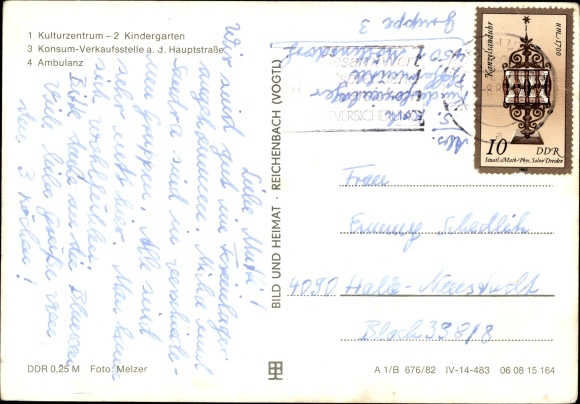 1 Kulturzentrum – 2 Kindergarten
3 Konsum-Verkaufsstelle a. d. Hauptstraße
4 Ambulanz
Liebe Mutti!
Wir sind gut im Ferienlager
angekommen. Mike und
Sandra sind in verschiede-
nen Gruppen. Alle sind
sehr nett hier. Man kann
sich wohlfühlen.
Bitte denk an die Blumen
Viele liebe Grüße von
den 3
DDR 0,25 M Foto: Melzer
BILD UND HEIMAT · REICHENBACH (VOGTL)
Abs.
Kinderferienlager
Gruppe 3
Kanzelsanduhr
um 1700
10 DDR
Staatl. Math.-Phys. Salon Dresden
1983
Frau
4090 Halle-Neustadt
Block 398/8
A 1/B 676/82 IV-14-483 06 08 15 164